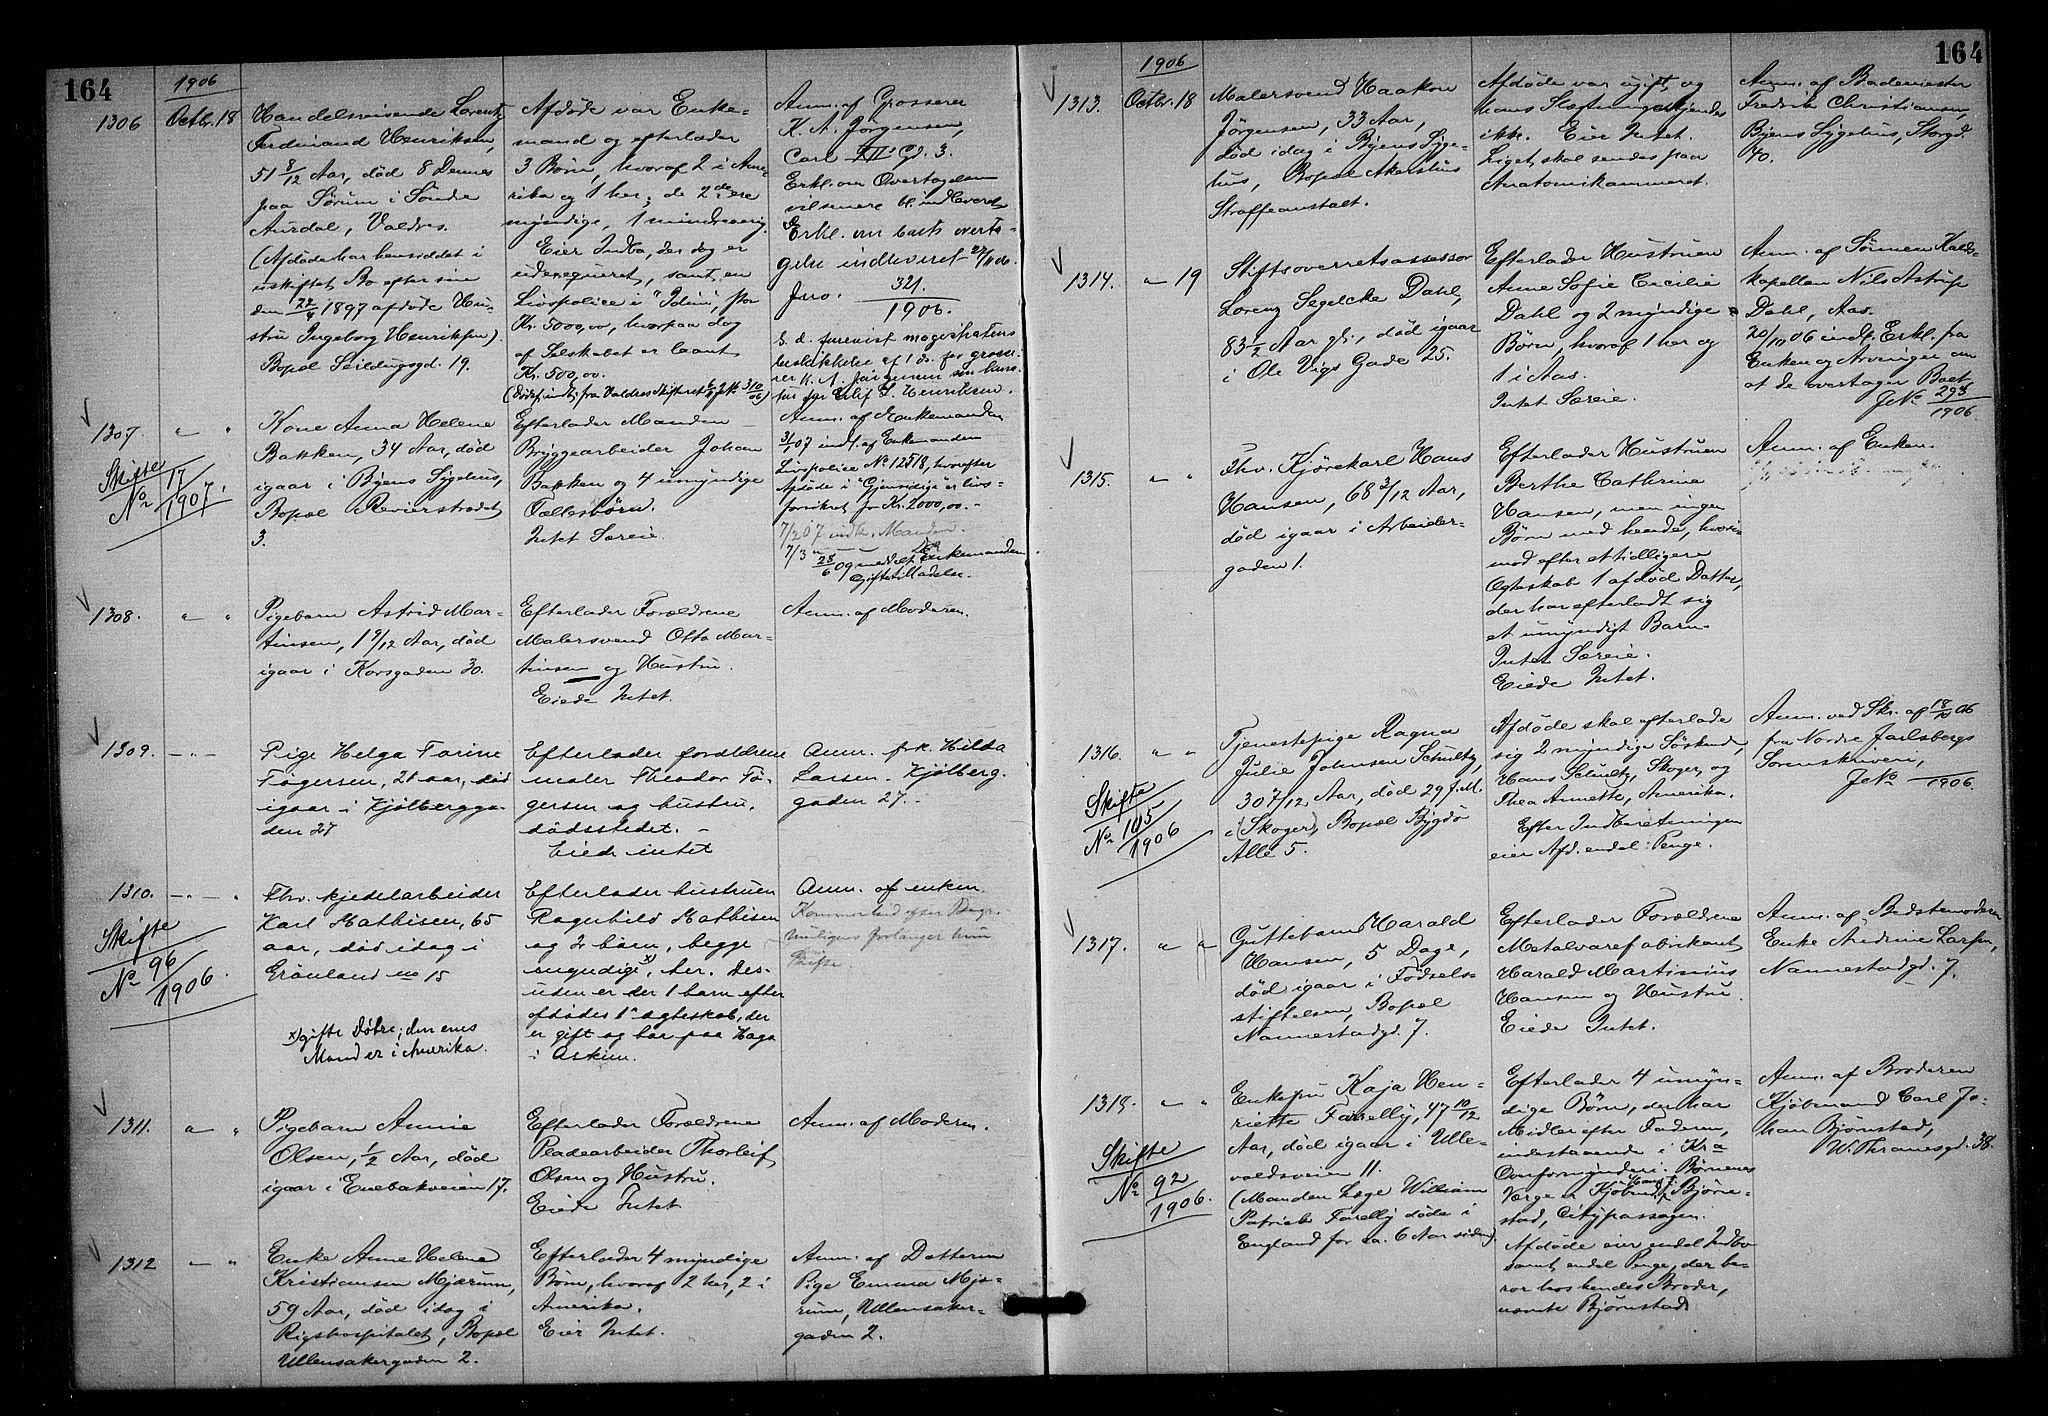 164
1906
1306 Octbr. 18
Handelsreisende Lorentz
Ferdinand Henriksen,
51 8/12 Aar, død 8 Dennes
paa Sørum i Søndre
Aurdal, Valdres.
(Afdøde har hensiddet i
uskiftet Bo efter sin
den 1897 afdøde Hu-
stru Ingeborg Henriksen).
Bopæl Seildugsgd. 19.
Afdøde var Enke-
mand og efterlader
3 Børn, hvoraf 2 i Ame-
rika og 1 her; de 2 ere
myndige, 1 mindreaarig.
Eier Indbo, der dog er
uberegneret, samt en
Livspolice i "Idun", for
Kr. 5000,00, hvorpaa dog
af Selskabet er laant
Kr. 500,00.
Anm. af Grosserer
K. A. Jørgensen,
Carl XII Gd. 3.
Erkl. om Overtagelsen
vil senere bl. indleveret
Erkl. om boets overta-
gelse indleveret 27/11 06.
Jnr. 321.
1906.
1307. " "
Skifte
No 17
1907.
Kone Anna Helene
Bakken, 34 Aar, død
igaar i Byens Sygehus,
Bopæl Revierstrædet
3.
Efterlader Manden
Bryggearbeider Johan
Bakken og 4 umyndige
Fællesbørn.
Intet Særeie.
Anm. af Enkemanden
3/1 07 indl. af Enkemanden
Livspolice No 12518, hvorefter
Afdøde i "Gjensidige" er livs-
forsikret for Kr. 2000,00.-
7/2 07 indk. Manden.
7/3 " —
28/6 09 meddelt Enkemanden
Giftetilladelse.
1308. " "
Pigebarn Astrid Mar-
tinsen, 1 9/12 Aar, død
igaar i Korsgaden 30.
Efterlader Forældrene
Malersvend Otto Mar-
tinsen og Hustru.
Eiede Intet.
Anm. af Moderen.
1309. -"-
Pige Helga Farine
Fagersen, 21 aar, død
igaar i Kjølbergga-
den 27
Efterlader forældrene
maler Theodor Fa-
gersen og hustru,
dødsstedet. -
Eiede intet
Anm. frk. Hilda
Larsen. Kjølberg.
gaden 27.
1310. -"- "
Skifte
No 96
1906.
Fhv. kjedelarbeider
Karl Mathisen, 65
aar, død idag i
Grønland no 15
x) gifte Døtre; den enes
Mand er i Amerika.
Efterlader hustruen
Ragnhild Mathisen
og 2 børn, begge
myndige x), her. Des-
uden er der 1 barn efter
afdødes 1ste ægteskab, der
er gift og bor paa Haga
i Askim.
Anm. af enken.
muligens forlanger hun
Skifte.
1311. " "
Pigebarn Annie
Olsen, 1/2 Aar, død
igaar i Enebakveien 17.
Efterlader Forældrene
Pladearbeider Thorleif
Olsen og Hustru.
Eiede Intet
Anm. af Moderen.
1312 " "
Enke Anne Helene
Kristiansen Mjærum,
59 Aar, død idag i
Rigshospitalet, Bopæl
Ullensakergaden 2.
Efterlader 4 myndige
Børn, hvoraf 2 her, 2 i
Amerika.
Eier Intet.
Anm. af Datteren
Pige Emma Mjæ-
rum, Ullensaker-
gaden 2.
164
1906
1313. Octbr. 18
Malersvend Haakon
Jørgensen, 33 Aar,
død idag i Byens Syge-
hus, Bopæl Akershus
Straffeanstalt.
Afdøde var ugift, og
hans Slægtninge kjendes
ikke. Eier Intet.
Liget skal sendes paa
Anatomikammeret.
Anm. af Bademester
Fredrik Christiansen,
Byens Sygehus, Storgd.
40.
1314. " 19
Stiftsoverretsassessor
Lorenz Segelcke Dahl,
83 1/2 Aar gl., død igaar
i Ole Vigs Gade 25.
Efterlader Hustruen
Anne Sofie Cecilie
Dahl og 2 myndige
Børn, hvoraf 1 her og
1 i Aas.
Intet Særeie.
Anm. af Sønnen Kalds-
kapellan Nils Astrup
Dahl, Aas.
20/10 06 indl. Erkl. fra
Enken og Arvinger om
at de overtager Boet
JNo 293
1906
1315. " "
Fhv. Kjørekarl Hans
Hansen, 68 3/12 Aar,
død igaar i Arbeider-
gaden 1.
Efterlader Hustruen
Berthe Cathrine
Hansen, men ingen
Børn med hende, hvori-
mod efter et tidligere
Ægteskab 1 afdød Datter,
der har efterladt sig
et umyndigt Barn.
Intet Særeie.
Eiede Intet.
Anm. af Enken.
1316. " "
Skifte
No 105
1906
Tjenestepige Ragna
Julie Johnsen Schultz,
30 7/12 Aar, død 29 f. M.
i (Skoger), Bopæl Bygdø
Alle 5.
Afdøde skal efterlade
sig 2 myndige Søskend,
Hans Schultz, Skoger, og
Thea Annette, Amerika.
Efter Indberetningen
eier Afd. endel Penge.
Anm. ved Skr. af 18/10 06
fra Nordre Jarlsbergs
Sorenskriveri,
JNo
1906.
1317. " "
Guttebarn Harald
Hansen, 5 Dage,
død igaar i Fødsels-
stiftelsen, Bopæl
Nannestadgd. 7.
Efterlader Forældrene
Metalvarefabrikant
Harald Martinius
Hansen og Hustru.
Eiede Intet.
Anm. af Bedstemoderen
Enke Andrine Larsen,
Nannestadgd. 7.
1318. " "
Skifte
No 92
1906.
Enkefru Kaja Hen-
riette Farelly, 47 10/12
Aar, død igaar i Ulle-
voldsveien 11.
(Manden Læge William
Patrick Farelly døde i
England for ca. 6 Aar siden).
Efterlader 4 umyn-
dige Børn, der har
Midler efter Faderen,
indestaaende i Kra
Overformynderi. Børnenes
Værge er Kjøbmd. Bjørne-
stad, Citypassagen.
Afdøde eier endel Indbo
samt endel Penge, der be-
ror hos hendes Broder,
nævnte Bjørnstad.
Anm. af Broderen
Kjøbmand Carl Jo-
han Bjørnstad,
W. Thranesgd. 38.